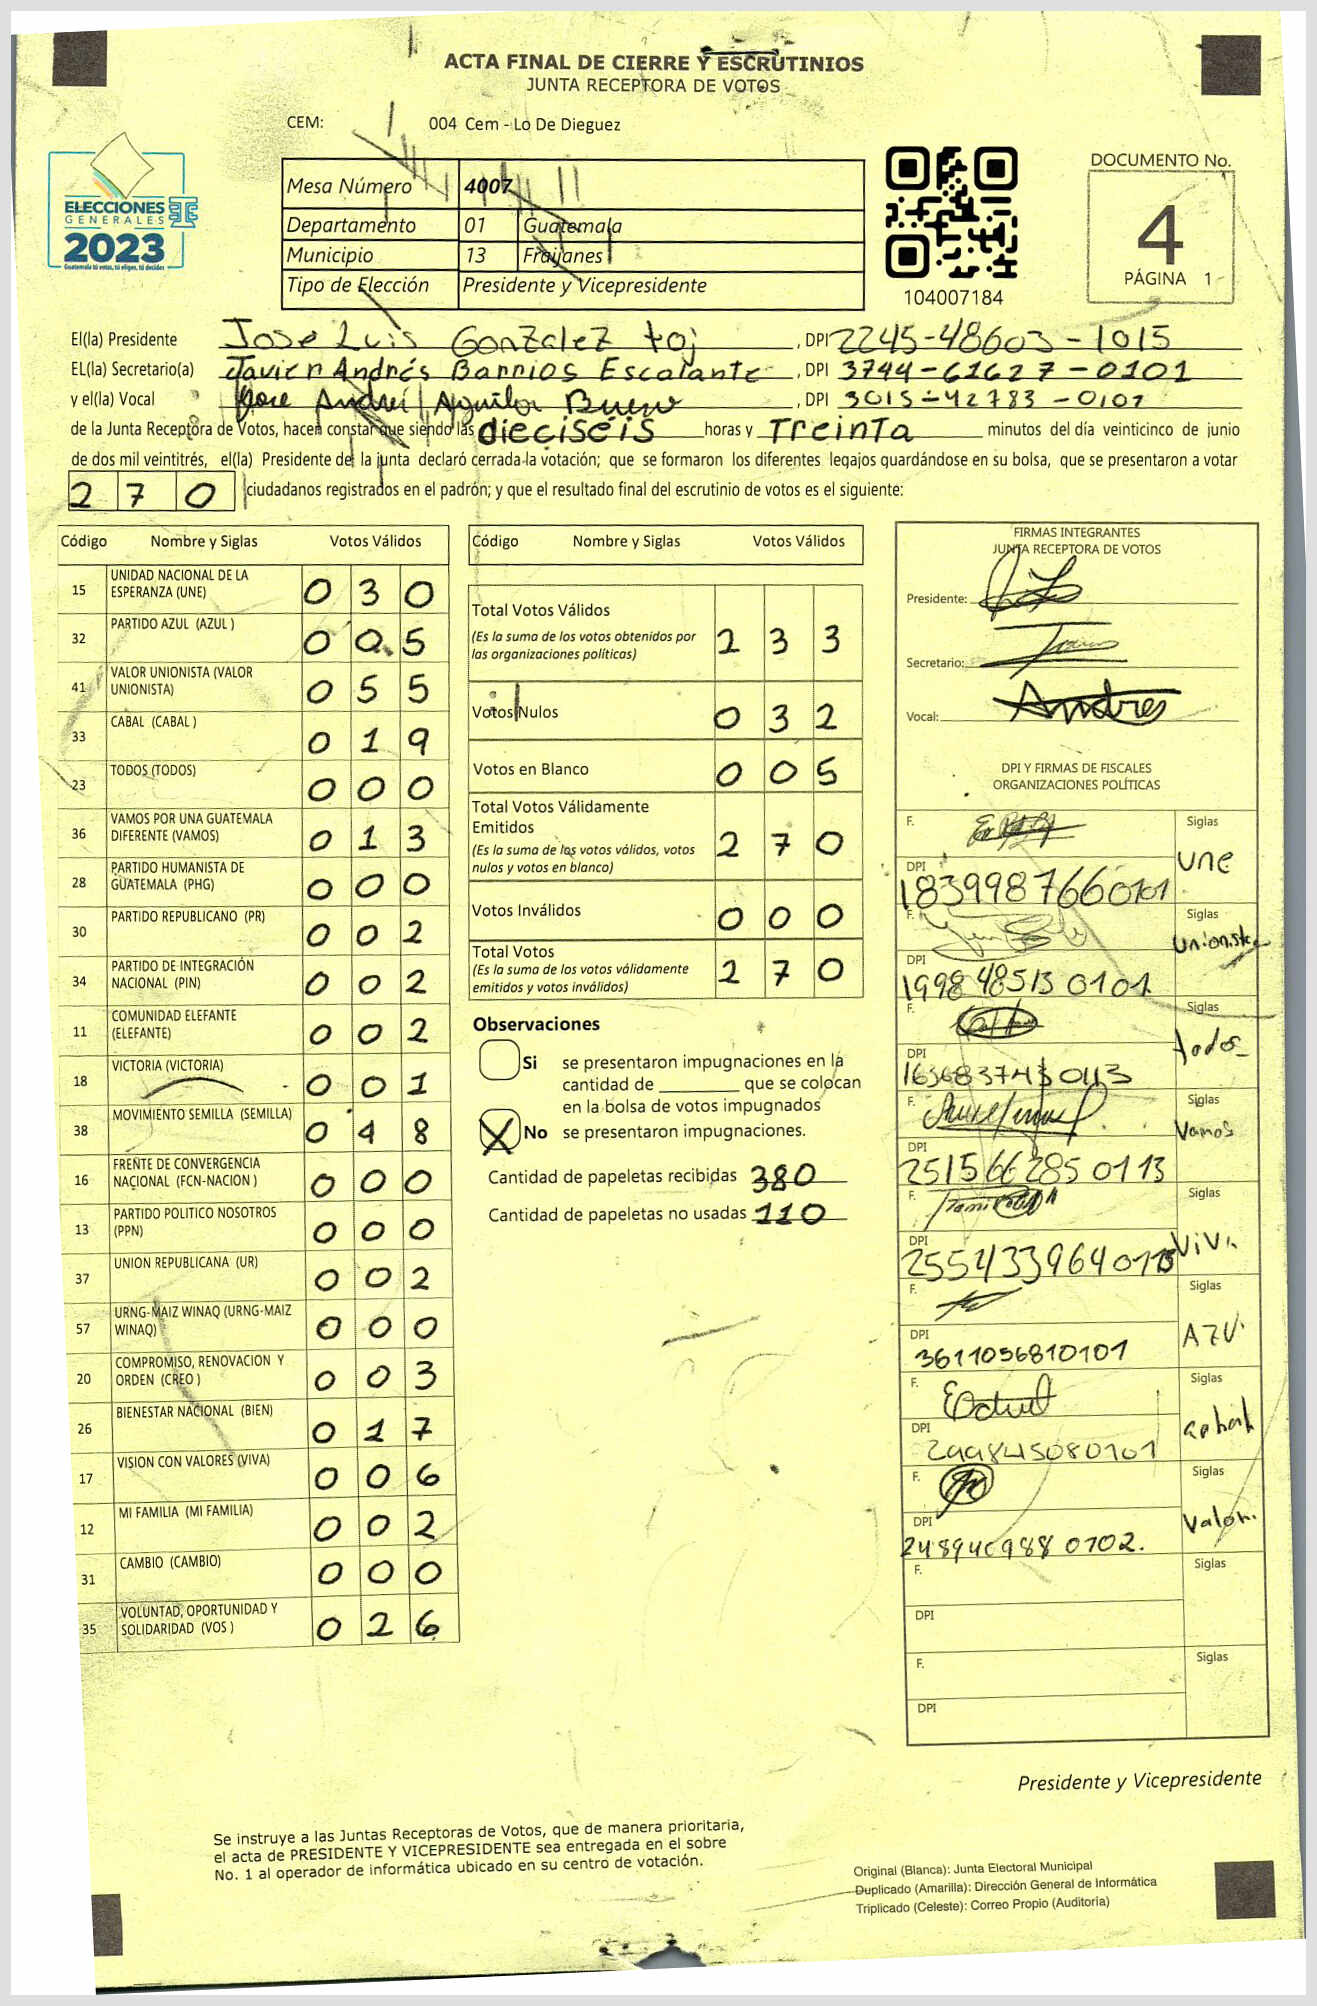 ACTA FINAL DE CIERRE Y ESCRUTINIOS
JUNTA RECEPTORA DE VOTOS
CEM: 004 Cem - Lo De Dieguez
ELECCIONES
GENERALES
2023
Guatemala tú votas, tú eliges, tú decides
Mesa Número 4007
Departamento 01 Guatemala
Municipio 13 Fraijanes
Tipo de Elección Presidente y Vicepresidente
104007184
DOCUMENTO No.
4
PÁGINA 1
El(la) Presidente Jose Luis Gonzalez toj, DPI 2245-48603-1015
EL(la) Secretario(a) Javier Andrés Barrios Escalante, DPI 3744-61627-0101
y el(la) Vocal Jose Andreí Aguilar Bueso, DPI 3015-42783-0101
de la Junta Receptora de Votos, hacen constar que siendo las dieciséis horas y Treinta minutos del día veinticinco de junio
de dos mil veintitrés, el(la) Presidente de la junta declaró cerrada la votación; que se formaron los diferentes legajos guardándose en su bolsa, que se presentaron a votar
270 ciudadanos registrados en el padrón; y que el resultado final del escrutinio de votos es el siguiente:
Código Nombre y Siglas Votos Válidos
15 UNIDAD NACIONAL DE LA ESPERANZA (UNE) 0 3 0
32 PARTIDO AZUL (AZUL ) 0 0 5
41 VALOR UNIONISTA (VALOR UNIONISTA) 0 5 5
33 CABAL (CABAL ) 0 1 9
23 TODOS (TODOS) 0 0 0
36 VAMOS POR UNA GUATEMALA DIFERENTE (VAMOS) 0 1 3
28 PARTIDO HUMANISTA DE GUATEMALA (PHG) 0 0 0
30 PARTIDO REPUBLICANO (PR) 0 0 2
34 PARTIDO DE INTEGRACIÓN NACIONAL (PIN) 0 0 2
11 COMUNIDAD ELEFANTE (ELEFANTE) 0 0 2
18 VICTORIA (VICTORIA) 0 0 1
38 MOVIMIENTO SEMILLA (SEMILLA) 0 4 8
16 FRENTE DE CONVERGENCIA NACIONAL (FCN-NACION ) 0 0 0
13 PARTIDO POLITICO NOSOTROS (PPN) 0 0 0
37 UNION REPUBLICANA (UR) 0 0 2
57 URNG-MAIZ WINAQ (URNG-MAIZ WINAQ) 0 0 0
20 COMPROMISO, RENOVACION Y ORDEN (CREO ) 0 0 3
26 BIENESTAR NACIONAL (BIEN) 0 1 7
17 VISION CON VALORES (VIVA) 0 0 6
12 MI FAMILIA (MI FAMILIA) 0 0 2
31 CAMBIO (CAMBIO) 0 0 0
35 VOLUNTAD, OPORTUNIDAD Y SOLIDARIDAD (VOS ) 0 2 6
Código Nombre y Siglas Votos Válidos
Total Votos Válidos 2 3 3
(Es la suma de los votos obtenidos por
las organizaciones políticas)
Votos Nulos 0 3 2
Votos en Blanco 0 0 5
Total Votos Válidamente
Emitidos 2 7 0
(Es la suma de los votos válidos, votos
nulos y votos en blanco)
Votos Inválidos 0 0 0
Total Votos 2 7 0
(Es la suma de los votos válidamente
emitidos y votos inválidos)
Observaciones
Si se presentaron impugnaciones en la
cantidad de ________ que se colocan
en la bolsa de votos impugnados
X No se presentaron impugnaciones.
Cantidad de papeletas recibidas 380
Cantidad de papeletas no usadas 110
FIRMAS INTEGRANTES
JUNTA RECEPTORA DE VOTOS
Presidente:
Secretario:
Vocal: Andres
DPI Y FIRMAS DE FISCALES
ORGANIZACIONES POLÍTICAS
F. Siglas
UNE
DPI
1839987660101
F. Siglas
Unionista
DPI
1998485130101
F. Siglas
todos
DPI
F. Siglas
Vamos
DPI
2515662850113
F. Siglas
VIVA
DPI
F. Siglas
AZUL
DPI
3611056810101
F. Siglas
DPI
299845080101
F. Siglas
Valor.
DPI
F. Siglas
DPI
F. Siglas
DPI
Presidente y Vicepresidente
Se instruye a las Juntas Receptoras de Votos, que de manera prioritaria,
el acta de PRESIDENTE Y VICEPRESIDENTE sea entregada en el sobre
No. 1 al operador de informática ubicado en su centro de votación.
Original (Blanca): Junta Electoral Municipal
Duplicado (Amarilla): Dirección General de Informática
Triplicado (Celeste): Correo Propio (Auditoria)